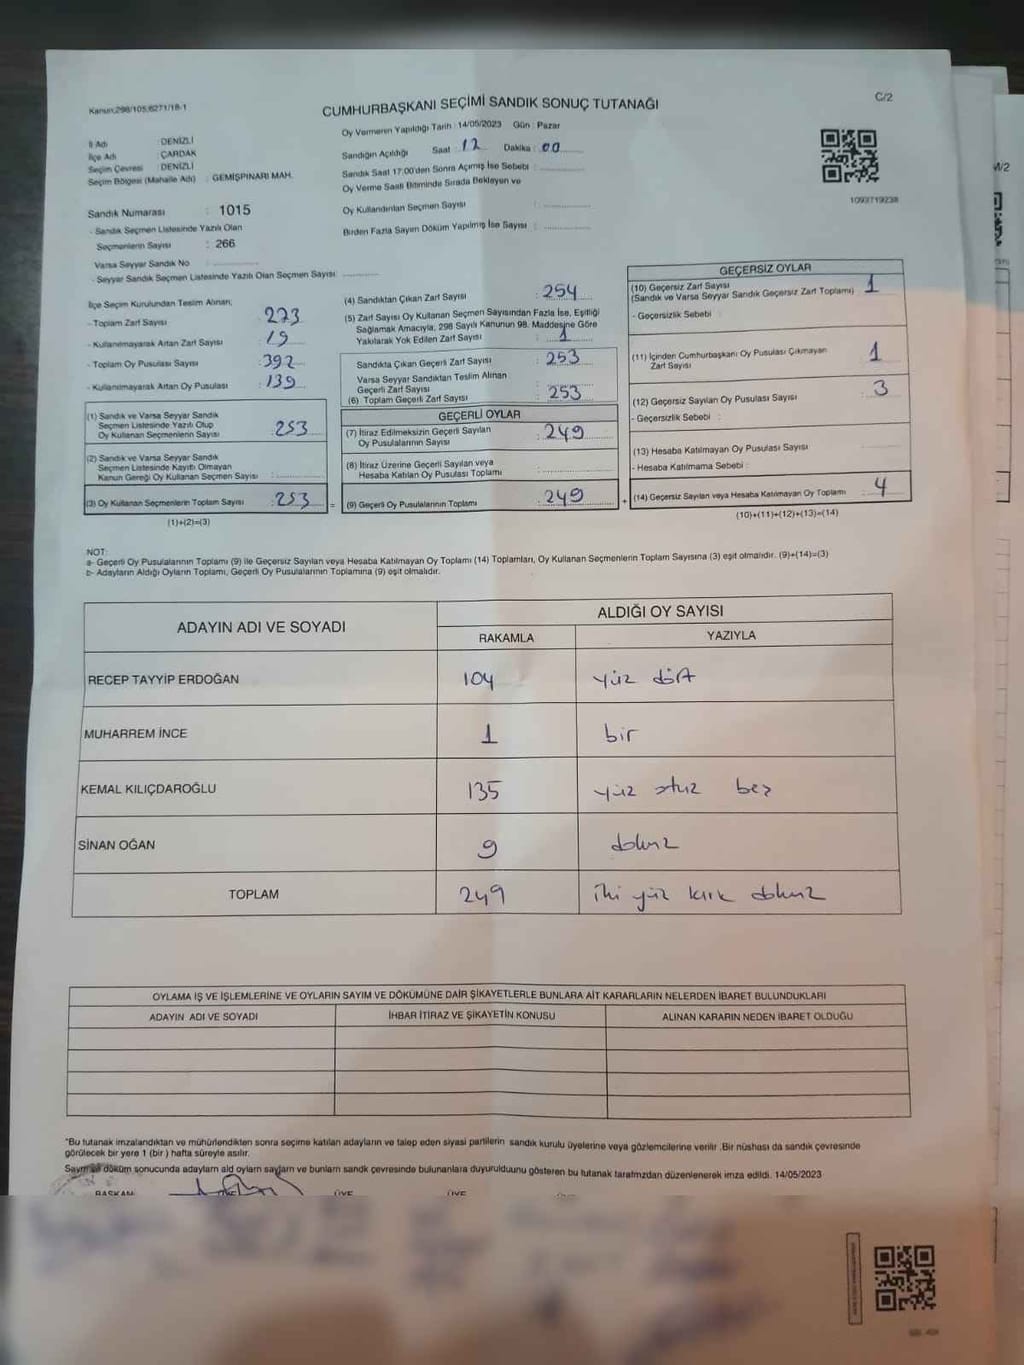 Kanun:298/105;6271/18-1
CUMHURBAŞKANI SEÇİMİ SANDIK SONUÇ TUTANAĞI
C/2
İl Adı : DENİZLİ
İlçe Adı : ÇARDAK
Seçim Çevresi : DENİZLİ
Seçim Bölgesi (Mahalle Adı) : GEMİŞPINARI MAH.
Oy Vermenin Yapıldığı Tarih : 14/05/2023 Gün : Pazar
Sandığın Açıldığı Saat : 12 Dakika : 00
Sandık Saat 17:00'den Sonra Açılmış İse Sebebi :
Oy Verme Saati Bitiminde Sırada Bekleyen ve
Oy Kullandırılan Seçmen Sayısı :
Birden Fazla Sayım Döküm Yapılmış İse Sayısı :
1093719238
Sandık Numarası : 1015
- Sandık Seçmen Listesinde Yazılı Olan
Seçmenlerin Sayısı : 266
Varsa Seyyar Sandık No :
- Seyyar Sandık Seçmen Listesinde Yazılı Olan Seçmen Sayısı:
İlçe Seçim Kurulundan Teslim Alınan;
- Toplam Zarf Sayısı : 273
- Kullanılmayarak Artan Zarf Sayısı : 19
- Toplam Oy Pusulası Sayısı : 392
- Kullanılmayarak Artan Oy Pusulası : 139
(1) Sandık ve Varsa Seyyar Sandık
Seçmen Listesinde Yazılı Olup
Oy Kullanan Seçmenlerin Sayısı : 253
(2) Sandık ve Varsa Seyyar Sandık
Seçmen Listesinde Kayıtlı Olmayan
Kanun Gereği Oy Kullanan Seçmen Sayısı :
(3) Oy Kullanan Seçmenlerin Toplam Sayısı : 253
(1)+(2)=(3)
(4) Sandıktan Çıkan Zarf Sayısı : 254
(5) Zarf Sayısı Oy Kullanan Seçmen Sayısından Fazla İse, Eşitliği
Sağlamak Amacıyla, 298 Sayılı Kanunun 98. Maddesine Göre
Yakılarak Yok Edilen Zarf Sayısı : 1
Sandıkta Çıkan Geçerli Zarf Sayısı : 253
Varsa Seyyar Sandıktan Teslim Alınan
Geçerli Zarf Sayısı :
(6) Toplam Geçerli Zarf Sayısı : 253
GEÇERLİ OYLAR
(7) İtiraz Edilmeksizin Geçerli Sayılan
Oy Pusulalarının Sayısı : 249
(8) İtiraz Üzerine Geçerli Sayılan veya
Hesaba Katılan Oy Pusulası Toplamı :
= (9) Geçerli Oy Pusulalarının Toplamı : 249
GEÇERSİZ OYLAR
(10) Geçersiz Zarf Sayısı
(Sandık ve Varsa Seyyar Sandık Geçersiz Zarf Toplamı) : 1
- Geçersizlik Sebebi :
(11) İçinden Cumhurbaşkanı Oy Pusulası Çıkmayan
Zarf Sayısı : 1
(12) Geçersiz Sayılan Oy Pusulası Sayısı : 3
- Geçersizlik Sebebi :
(13) Hesaba Katılmayan Oy Pusulası Sayısı :
- Hesaba Katılmama Sebebi :
+ (14) Geçersiz Sayılan veya Hesaba Katılmayan Oy Toplamı : 4
(10)+(11)+(12)+(13)=(14)
NOT:
a- Geçerli Oy Pusulalarının Toplamı (9) ile Geçersiz Sayılan veya Hesaba Katılmayan Oy Toplamı (14) Toplamları, Oy Kullanan Seçmenlerin Toplam Sayısına (3) eşit olmalıdır. (9)+(14)=(3)
b- Adayların Aldığı Oyların Toplamı, Geçerli Oy Pusulalarının Toplamına (9) eşit olmalıdır.
ADAYIN ADI VE SOYADI
ALDIĞI OY SAYISI
RAKAMLA YAZIYLA
RECEP TAYYİP ERDOĞAN 104 yüz dört
MUHARREM İNCE 1 bir
KEMAL KILIÇDAROĞLU 135 yüz otuz beş
SİNAN OĞAN 9 dokuz
TOPLAM 249 iki yüz kırk dokuz
OYLAMA İŞ VE İŞLEMLERİNE VE OYLARIN SAYIM VE DÖKÜMÜNE DAİR ŞİKAYETLERLE BUNLARA AİT KARARLARIN NELERDEN İBARET BULUNDUKLARI
ADAYIN ADI VE SOYADI İHBAR İTİRAZ VE ŞİKAYETİN KONUSU ALINAN KARARIN NEDEN İBARET OLDUĞU
"Bu tutanak imzalandıktan ve mühürlendikten sonra seçime katılan adayların ve talep eden siyasi partilerin sandık kurulu üyelerine veya gözlemcilerine verilir .Bir nüshası da sandık çevresinde
görülecek bir yere 1 (bir) hafta süreyle asılır.
döküm sonucunda adayların ald oyların sayların ve bunların sandk çevresinde bulunanlara duyurulduunu gösteren bu tutanak tarafmzdan düzenlenerek imza edildi. 14/05/2023
BAŞKAN ÜYE ÜYE